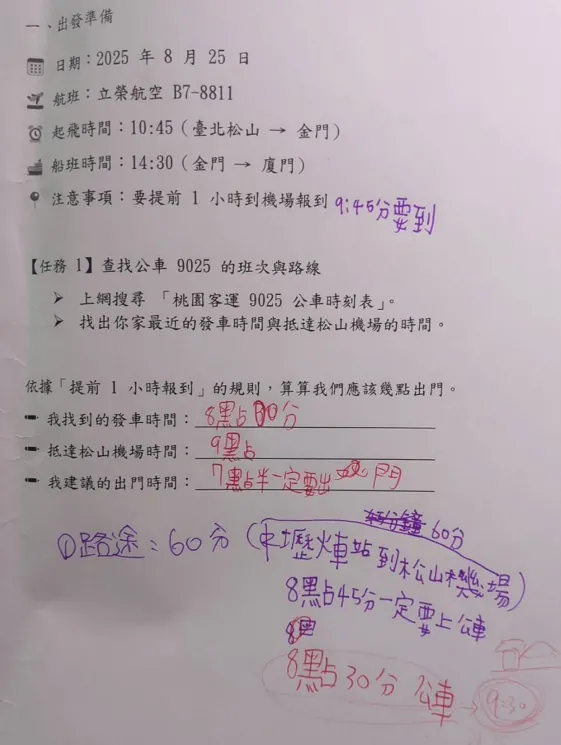 一、出發準備
日期：2025 年 8 月 25 日
航班：立榮航空 B7-8811
起飛時間：10:45（臺北松山 → 金門）
船班時間：14:30（金門 → 廈門）
注意事項：要提前 1 小時到機場報到 9:45分要到
【任務 1】查找公車 9025 的班次與路線
➤ 上網搜尋 「桃園客運 9025 公車時刻表」。
➤ 找出你家最近的發車時間與抵達松山機場的時間。
依據「提前 1 小時報到」的規則，算算我們應該幾點出門。
我找到的發車時間：8點 分
抵達松山機場時間：9點
我建議的出門時間：7點半一定要出 門
分鐘 60分
①路途：60分（中壢火車站到松山機場）
8點45分一定要上公車
8點30分 公車 → 9:30